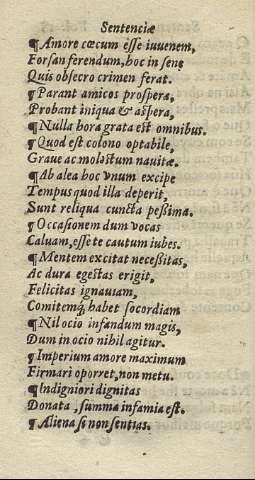 Sentenciæ
¶Amore cœcum esse iuuenem,
Forsan ferendum, hoc in sene
Quis obsecro crimen ferat.
¶Parant amicos prospera,
Probant iniqua & aspera,
¶Nulla hora grata est omnibus.
¶Quod est colono optabile,
Graue ac molestum nauitæ.
¶Ab alea hoc vnum excipe
Tempus quod illa deperit,
Sunt reliqua cuncta pessima.
¶Occasionem dum vocas
Caluam, esse te cautum iubes.
¶Mentem excitat necessitas,
Ac dura egestas erigit,
Felicitas ignauiam,
Comitemq́ habet socordiam
¶Nil ocio infandum magis,
Dum in ocio nihil agitur.
¶Imperium amore maximum
Firmari oporret, non metu.
¶Indigniori dignitas
Donata, summa infamia est.
¶Aliena si non sentias.